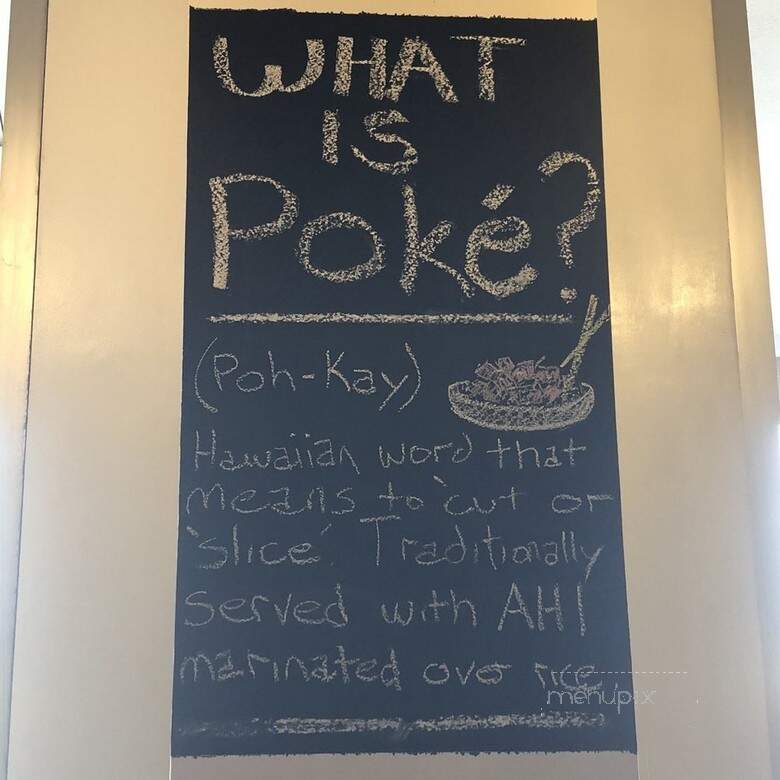 WHAT
IS
Poké?
(Poh-Kay)
Hawaiian word that
means to 'cut or
'slice'. Traditionally
served with AHI
marinated over rice.
menupix